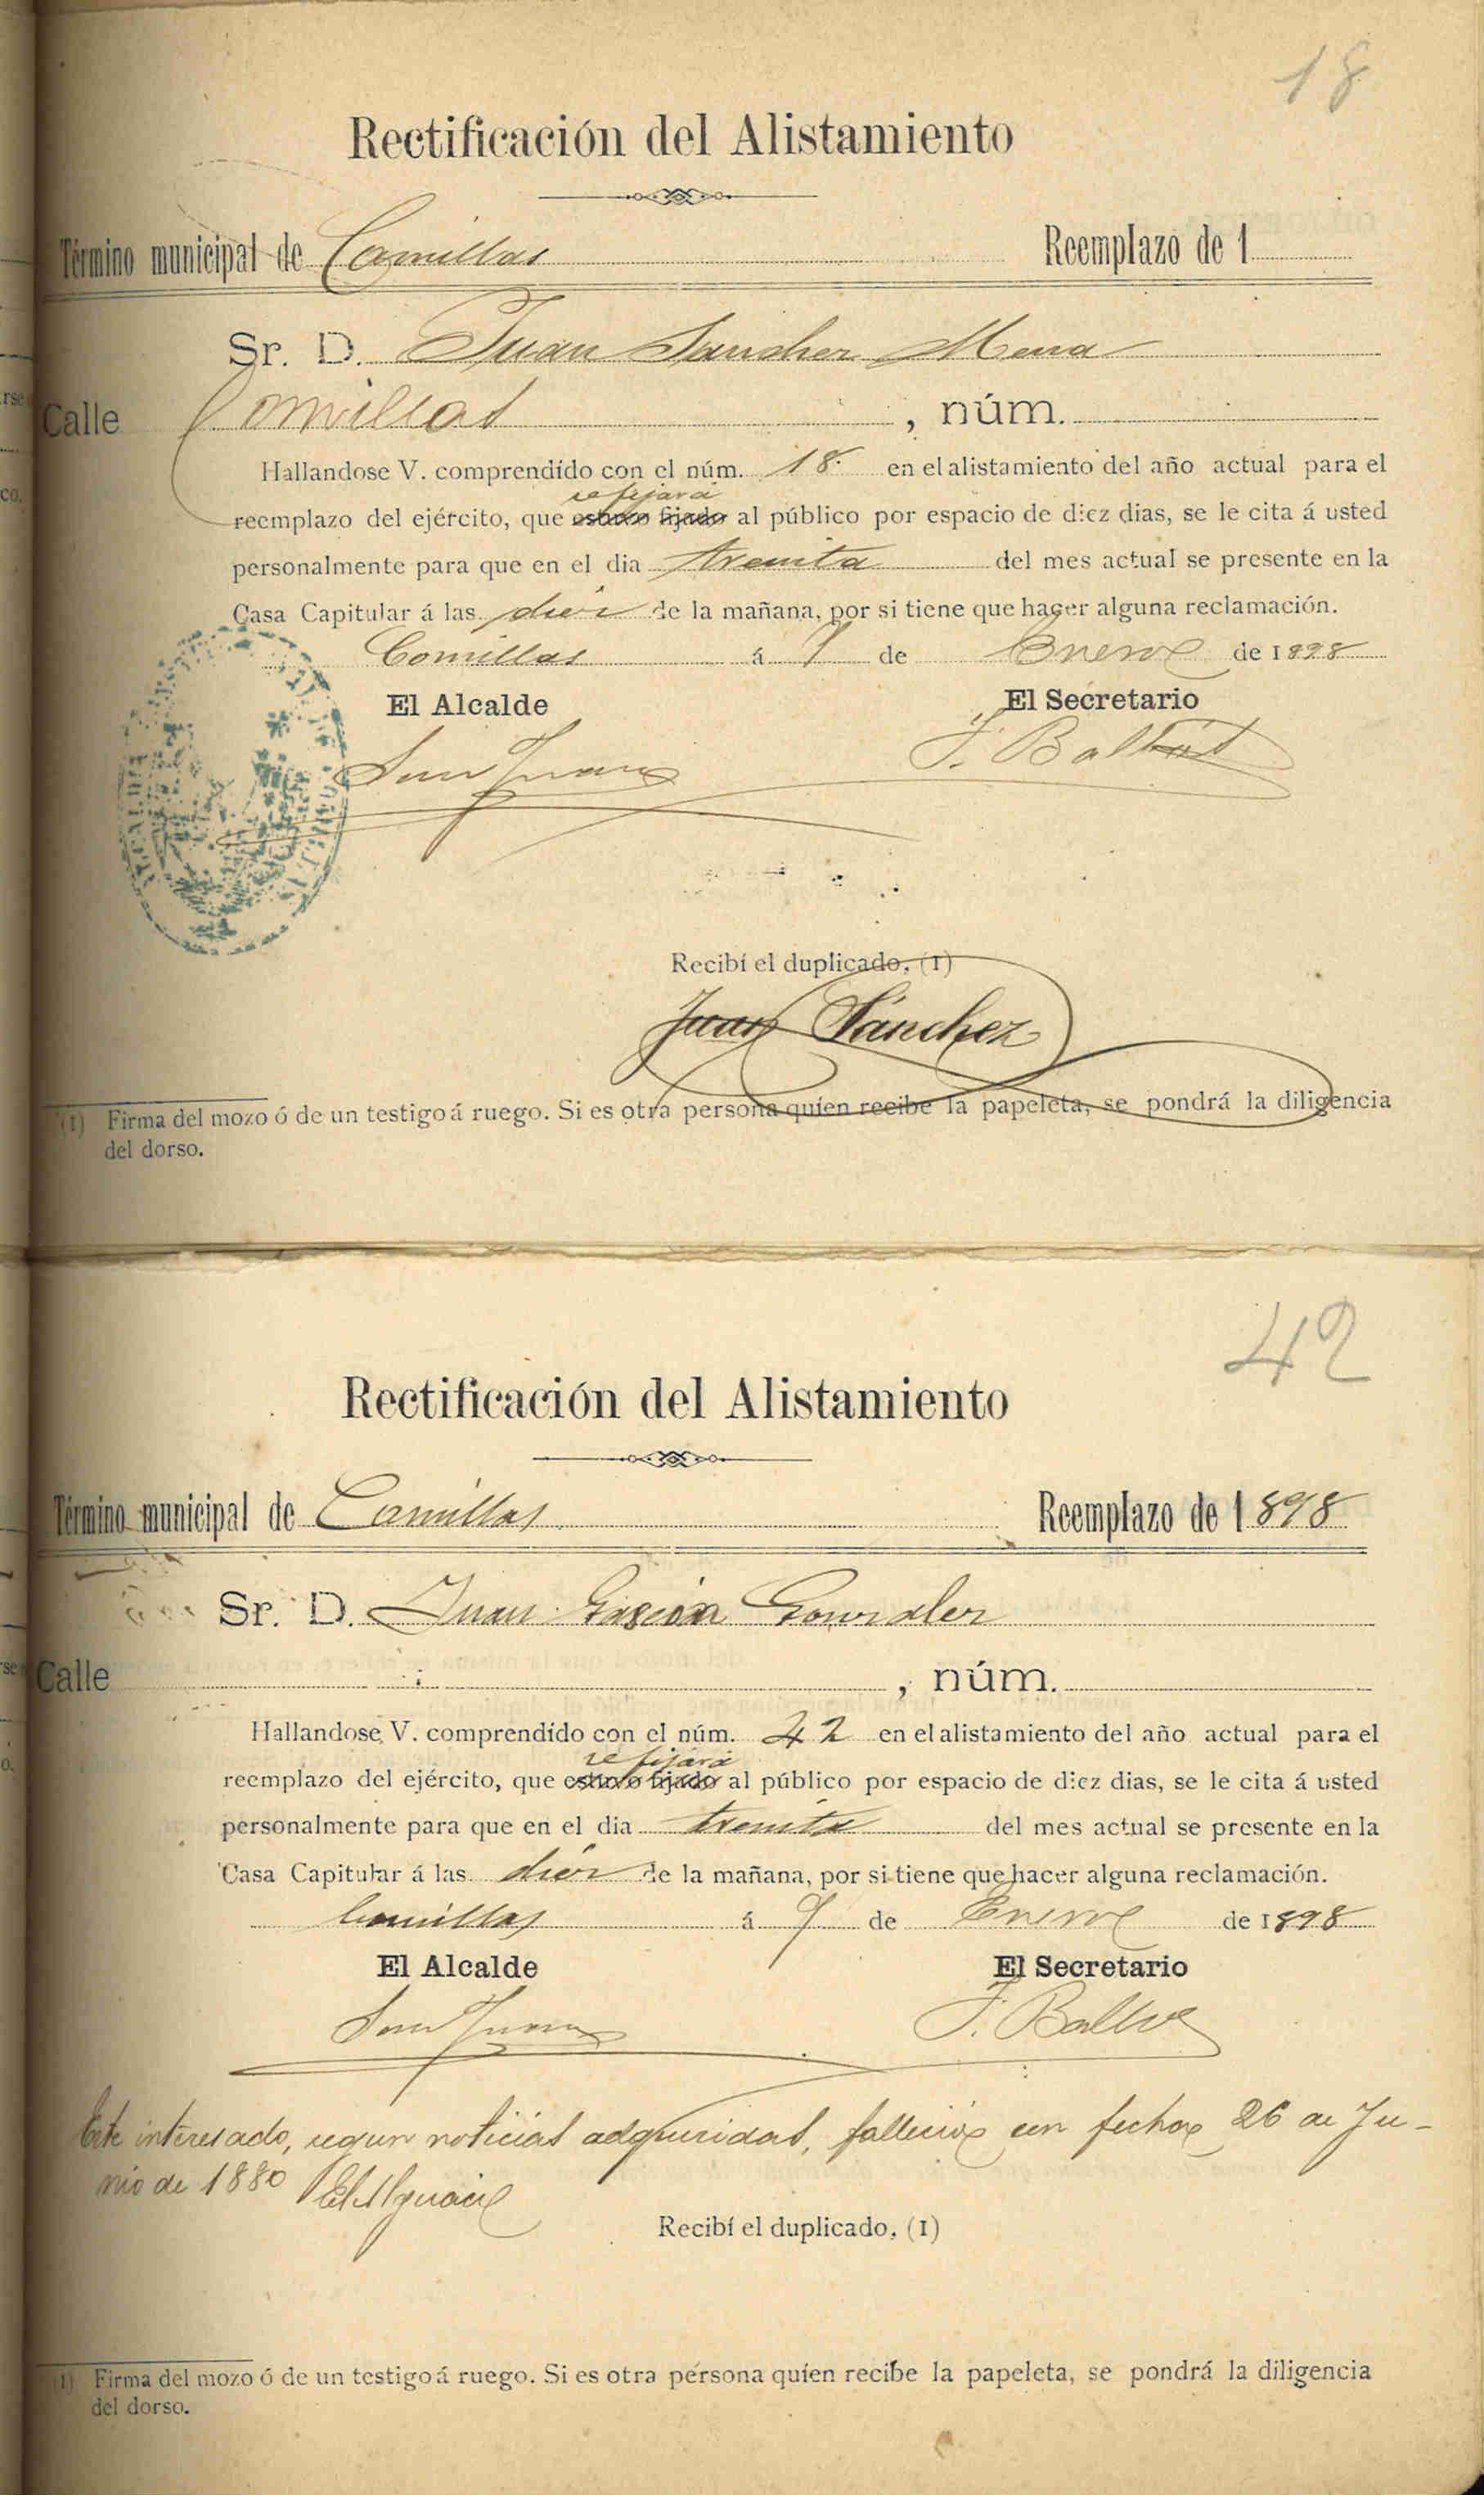 18
Rectificación del Alistamiento
Término municipal de Comillas Reemplazo de 1
Sr. D. Juan Sanchez Mena
Calle Comillas , núm.
Hallandose V. comprendído con el núm. 18. en el alistamiento del año actual para el
se fijará
reemplazo del ejército, que estuvo fijado al público por espacio de diez dias, se le cita á usted
personalmente para que en el dia treinta del mes actual se presente en la
Casa Capitular á las diez de la mañana, por si tiene que hacer alguna reclamación.
Comillas á 9 de Enero de 1898
El Alcalde El Secretario
San Juan J. Ballvé
Recibí el duplicado. (1)
Juan Sánchez
(1) Firma del mozo ó de un testigo á ruego. Si es otra persona quíen recibe la papeleta, se pondrá la diligencia
del dorso.
42
Rectificación del Alistamiento
Término municipal de Comillas Reemplazo de 1898
Sr. D. Juan Gascón Gonzalez
Calle , núm.
Hallandose V. comprendído con el núm. 42 en el alistamiento del año actual para el
se fijará
reemplazo del ejército, que estuvo fijado al público por espacio de diez dias, se le cita á usted
personalmente para que en el dia treinta del mes actual se presente en la
Casa Capitular á las diez de la mañana, por si tiene que hacer alguna reclamación.
Comillas á 9 de Enero de 1898
El Alcalde El Secretario
San Juan J. Ballvé
Este interesado, segun noticias adquiridas, falleció con fecha 26 de Ju-
nio de 1880 El Alguacil
Recibí el duplicado. (1)
(1) Firma del mozo ó de un testigo á ruego. Si es otra persona quíen recibe la papeleta, se pondrá la diligencia
del dorso.